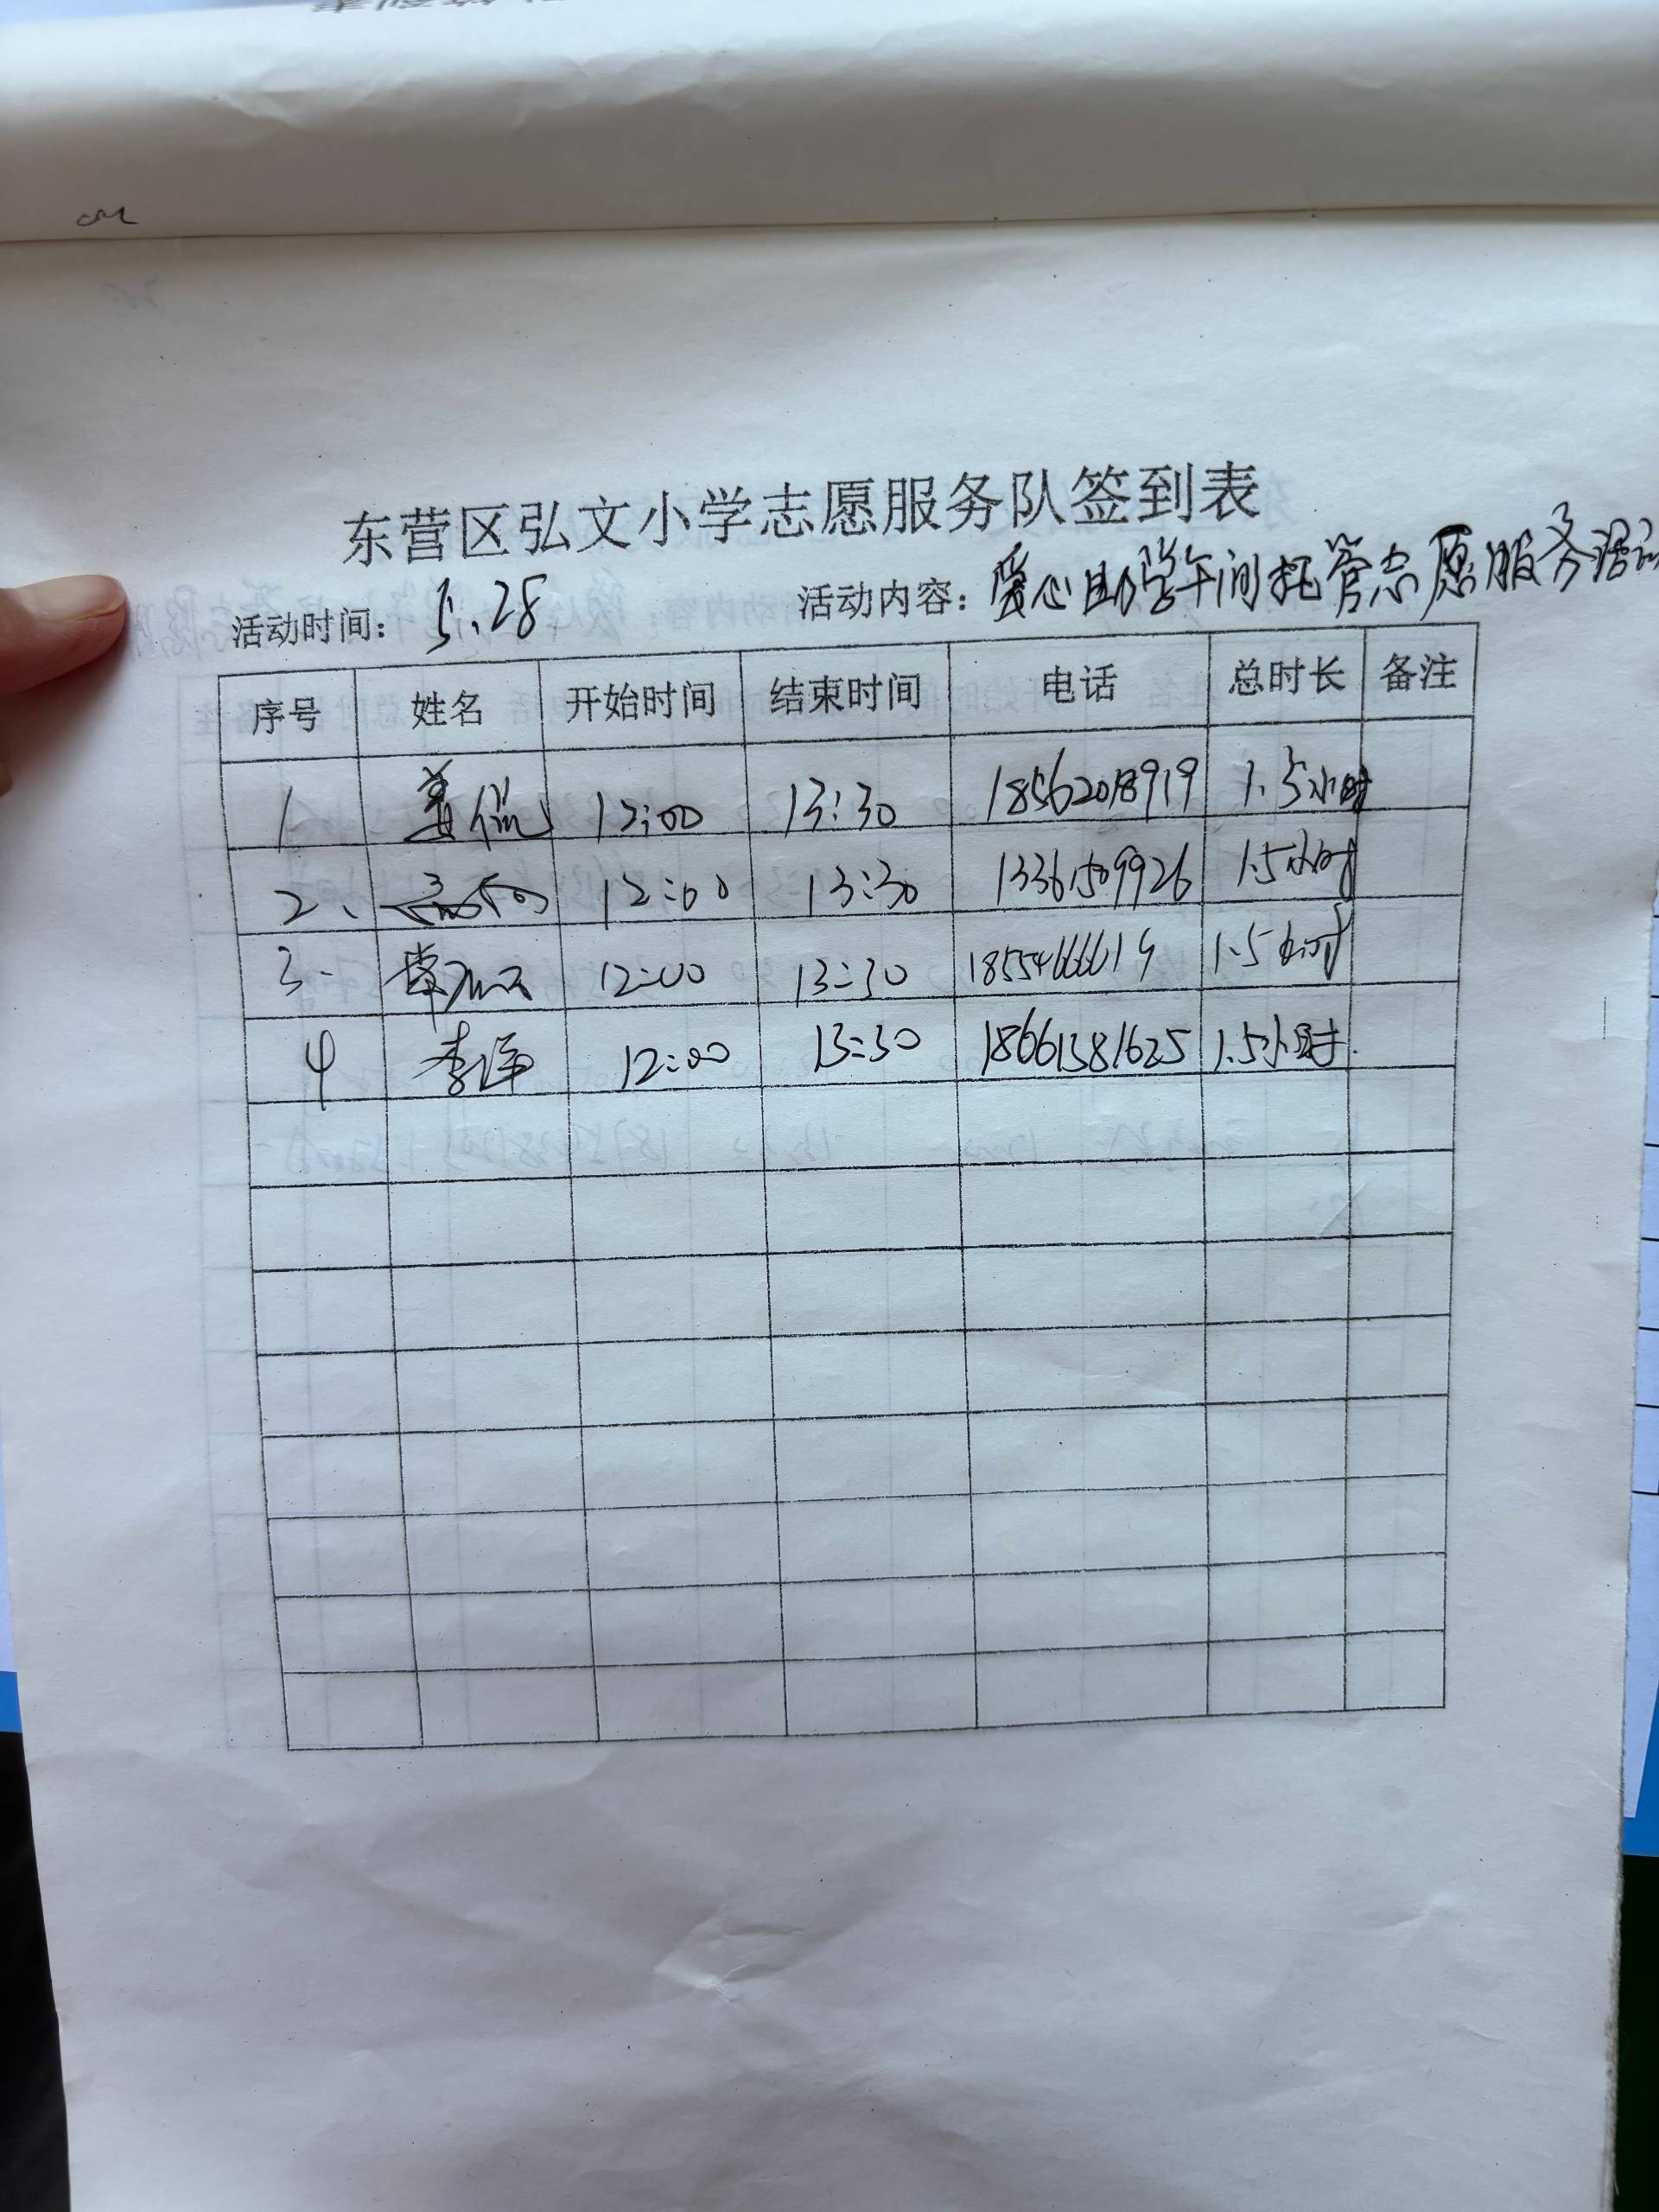 东营区弘文小学志愿服务队签到表
活动时间: 5.28 活动内容: 爱心助学午间托管志愿服务活动
序号 姓名 开始时间 结束时间 电话 总时长 备注
1 姜侃 12:00 13:30 18562018919 1.5小时
2、 12:00 13:30 13361509926 1.5小时
3. 12:00 13:30 18554666619 1.5小时
4 李萍 12:00 13:30 18661381625 1.5小时.